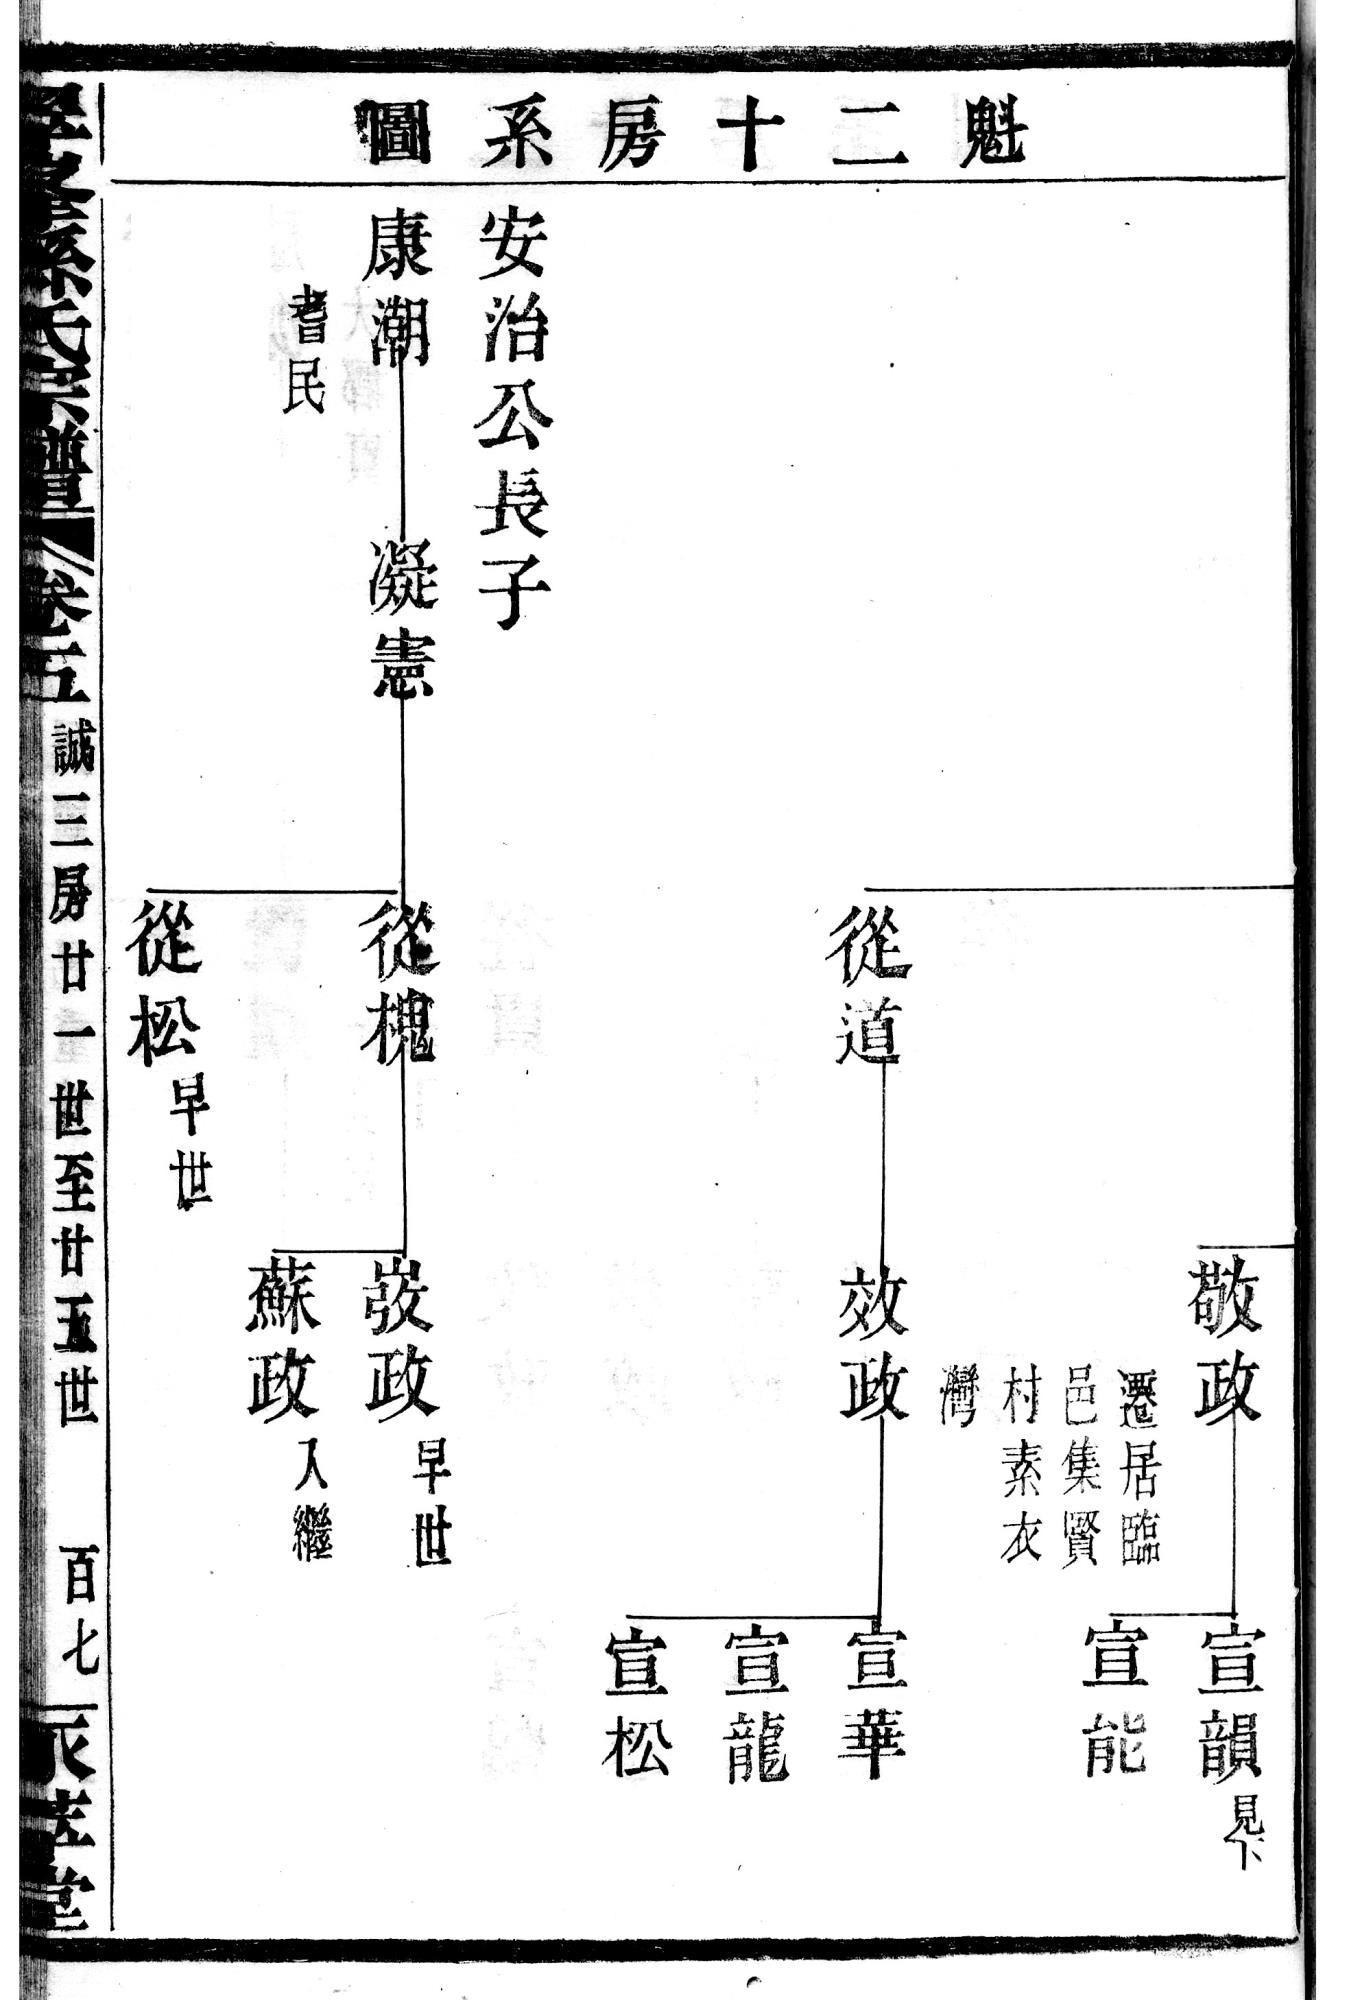 魁二十房系圖
敬政
遷居臨
邑集賢
村素衣
灣
宣韻
見下
宣能
從道
效政
宣華
宣龍
宣松
安治公長子
康潮
耆民
凝憲
從槐
敳政
早世
蘇政
入繼
從松
早世
孫氏宗譜
卷五
誠三房廿一世至廿五世
百七
堂